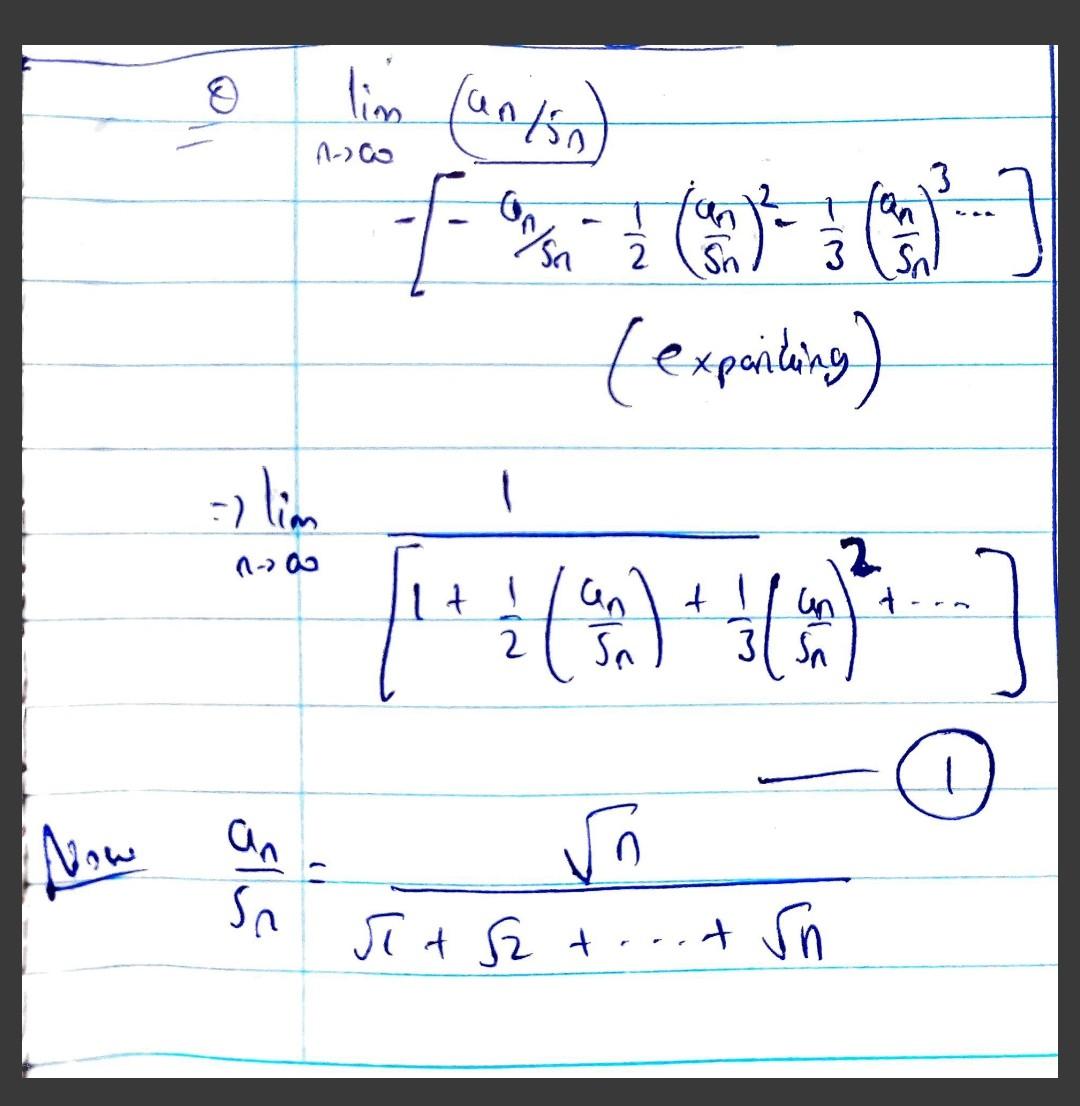 ② lim n→∞ (an/Sn)
-[- an/Sn - 1/2 (an/Sn)^2 - 1/3 (an/Sn)^3 ... ]
(expanding)
=> lim n→∞ 1
[1 + 1/2 (an/Sn) + 1/3 (an/Sn)^2 + ---- ]
— ①
Now an/Sn = √n
√1 + √2 + ---- + √n